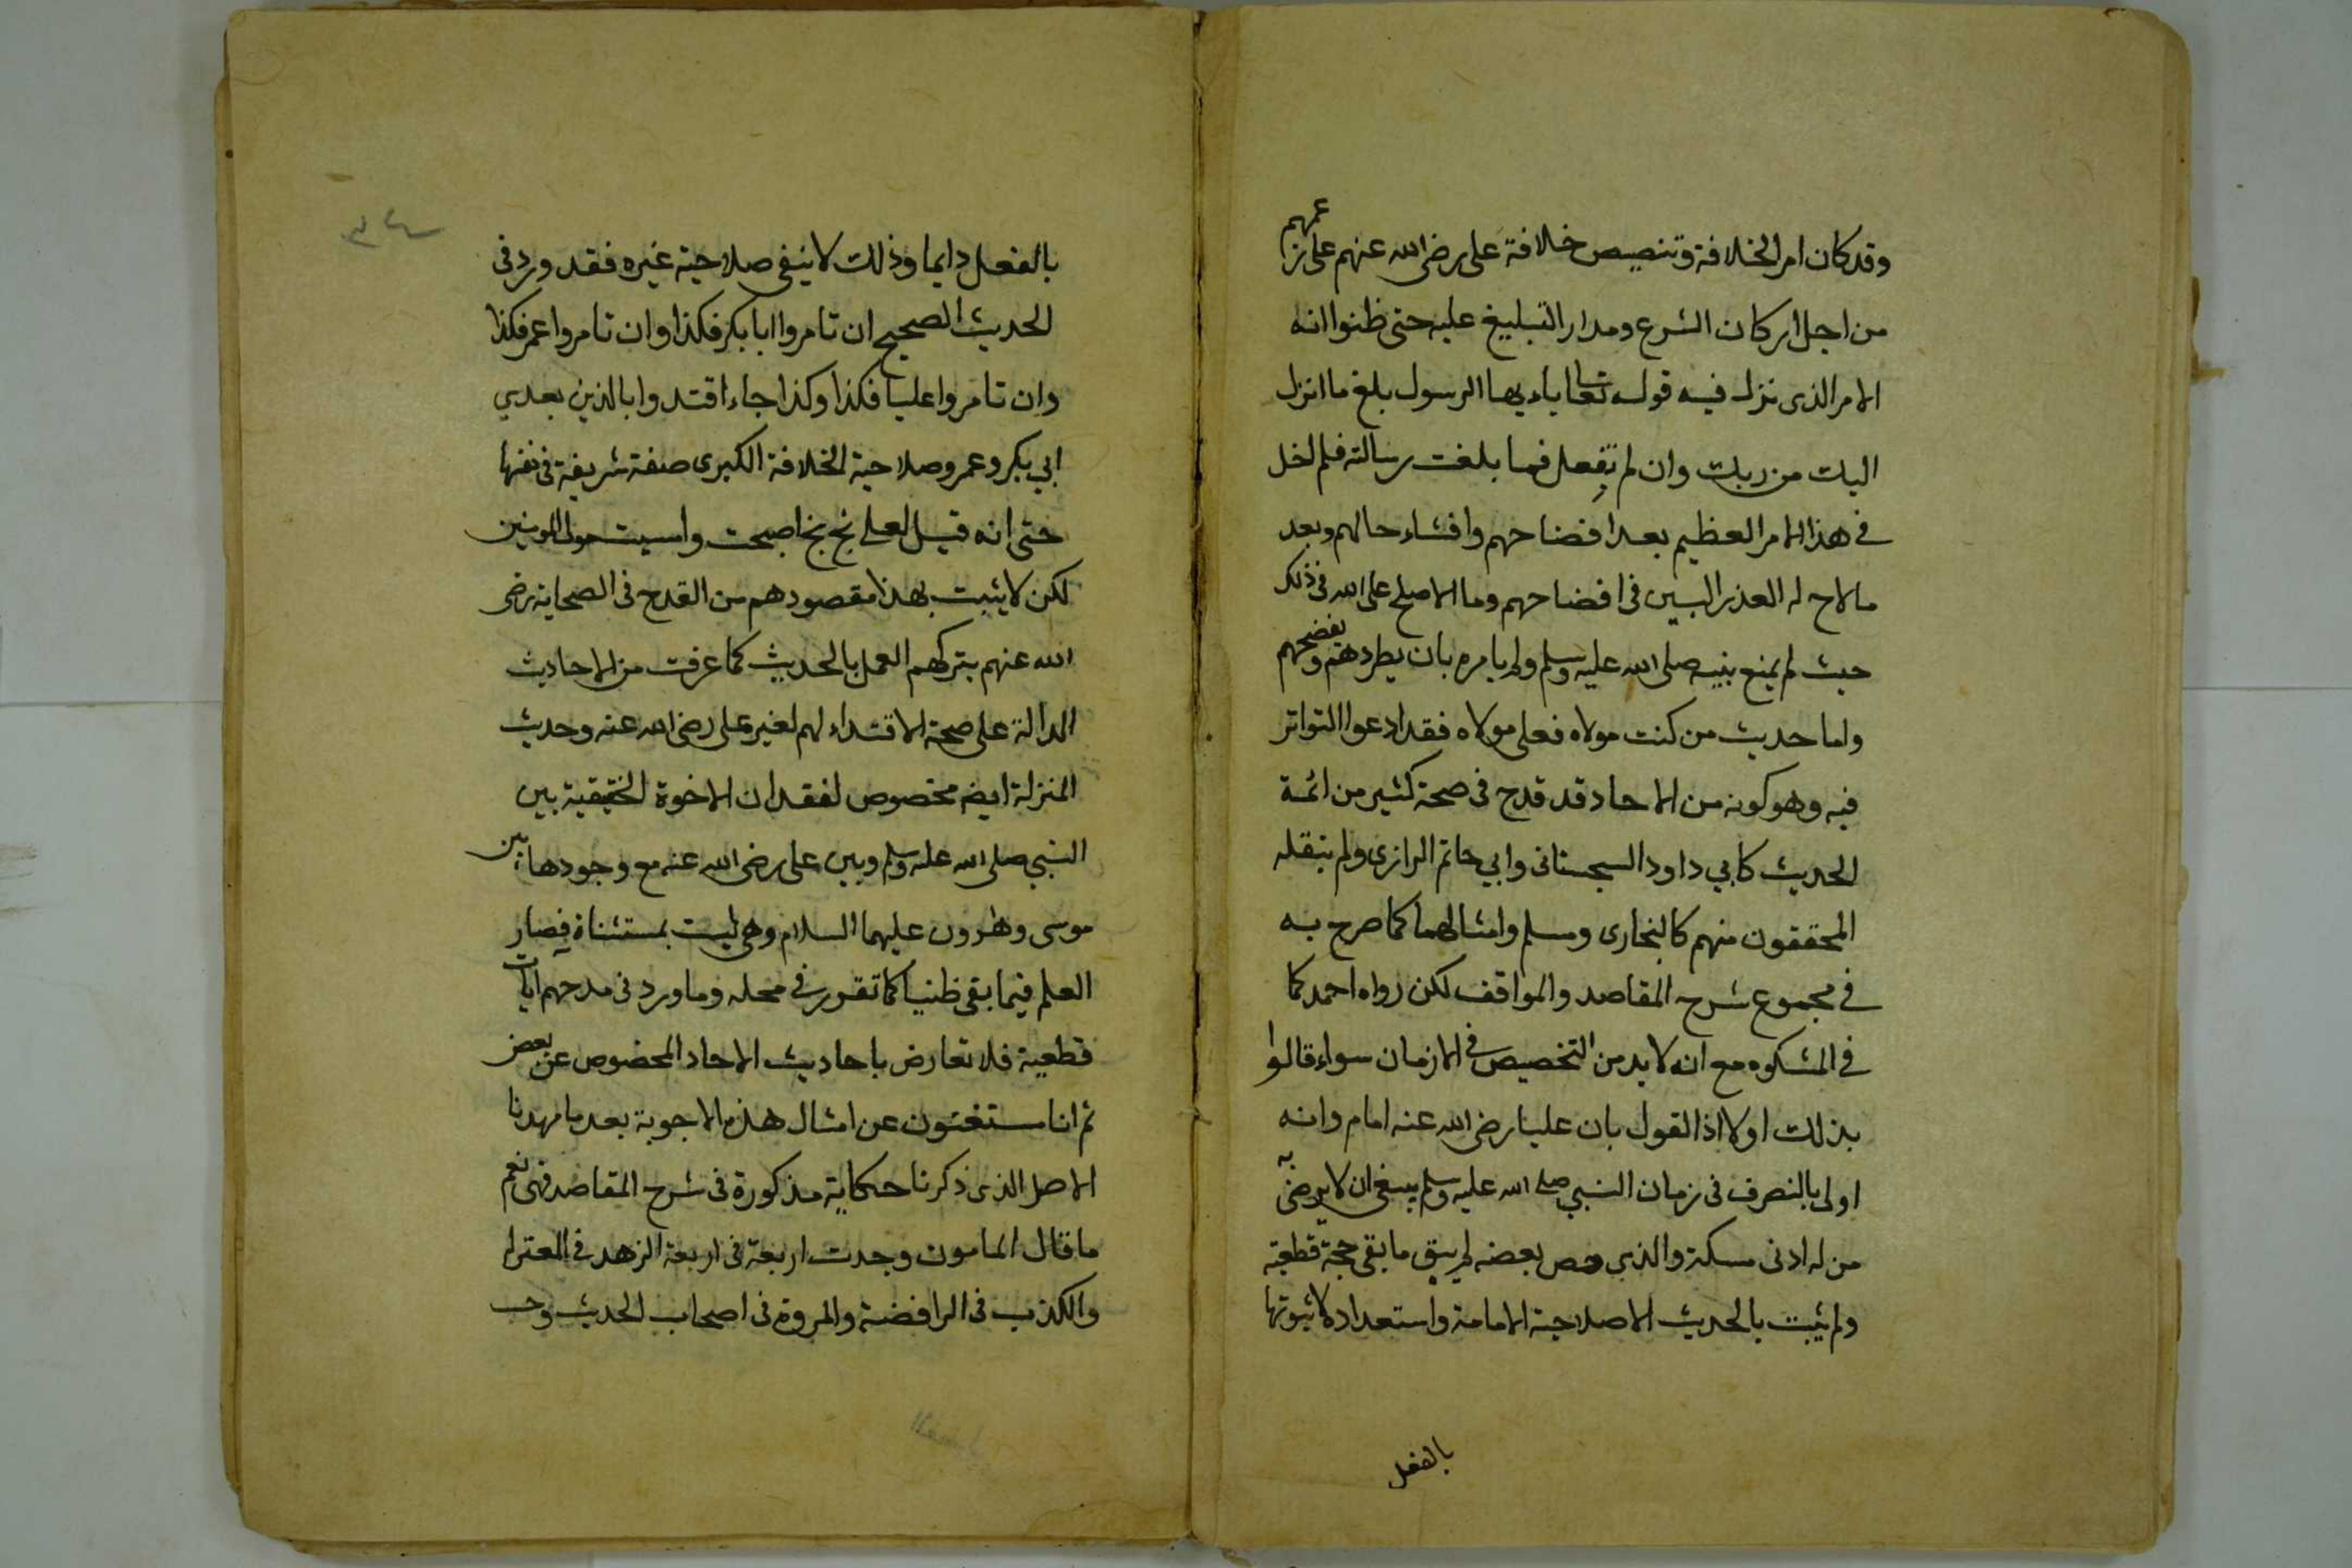 وقد كان امر الخلافة وتنصيص خلافة على رضى الله عنهم على زعمهم
من اجل اركان الشرع ومدار التبليغ عليه حتى ظنوا انه
الامر الذى نزل فيه قوله تعا ياءيها الرسول بلغ ما انزل
اليك من ربك وان لم تفعل فما بلغت رسالته فلم اخل
في هذا الامر العظيم بعد افضاحهم وافشاء حالهم وبعد
مالاح له العذر البين فى افضاحهم وما الاصلح على الله فى ذلك
حيث لم يمنع نبيه صلى الله عليه وسلم ولم يامره بان يطردهم ويفضحهم
واما حديث من كنت مولاه فعلى مولاه فقد ادعوا التواتر
فيه وهو كونه من الاحاد قد قدح فى صحة كثير من ائمة
الحديث كابي داود السجستانى وابي حاتم الرازى ولم ينقله
المحققون منهم كالبخارى ومسلم وامثالهما كما صرح به
في مجموع شرح المقاصد والمواقف لكن رواه احمد كما
في المشكوه مع انه لابد من التخصيص فى الازمان سواء قالوا
بذلك اولا اذ القول بان عليا رضى الله عنه امام وانه
اولى بالتصرف فى زمان النبي صلى الله عليه وسلم ينبغى ان لا يرضى به
من له ادنى مسكة والذى خص بعضه لم يبق ما بقى حجة قطعية
ولم يثبت بالحديث الا صلاحية الامامة واستعداده لا ثبوتها
بالفعل
بالفعل دايما وذلك لا ينفى صلاحية غيره فقد ورد فى
الحديث الصحيح ان تامروا ابا بكر فكذا وان تامروا عمر فكذا
وان تامروا عليا فكذا وكذا جاء اقتدوا بالذين بعدي
ابي بكر وعمر وصلاحية الخلافة الكبرى صفة شريفة فى نفسها
حتى انه قيل لعلى بخ بخ اصبحت وامسيت مولى المومنين
لكن لا يثبت بهذا مقصودهم من القدح فى الصحابة رضى
الله عنهم بتركهم العمل بالحديث كما عرفت من الاحاديث
الدالة على صحة الاقتداء لهم لغير على رضى الله عنه وحديث
المنزلة ايضا مخصوص لفقدان الاخوة الحقيقية بين
النبي صلى الله عليه وسلم وبين على رضى الله عنه مع وجودها بين
موسى وهرون عليهما السلام وهى ليست بمستثناة فصار
العلم فيما بقى ظنيا كما تقرر في محله وما ورد فى مدحهم ايات
قطعية فلا تعارض باحاديث الاحاد المخصوص عن بعض
ثم انا مستغنون عن امثال هذه الاجوبة بعد ما مهدنا
الاصل الذى ذكرنا حكاية مذكورة فى شرح المقاصد فهى نعم
ما قال المامون وجدت اربعة فى اربعة الزهد في المعتزلة
والكذب فى الرافضة والمروة فى اصحاب الحديث وحب